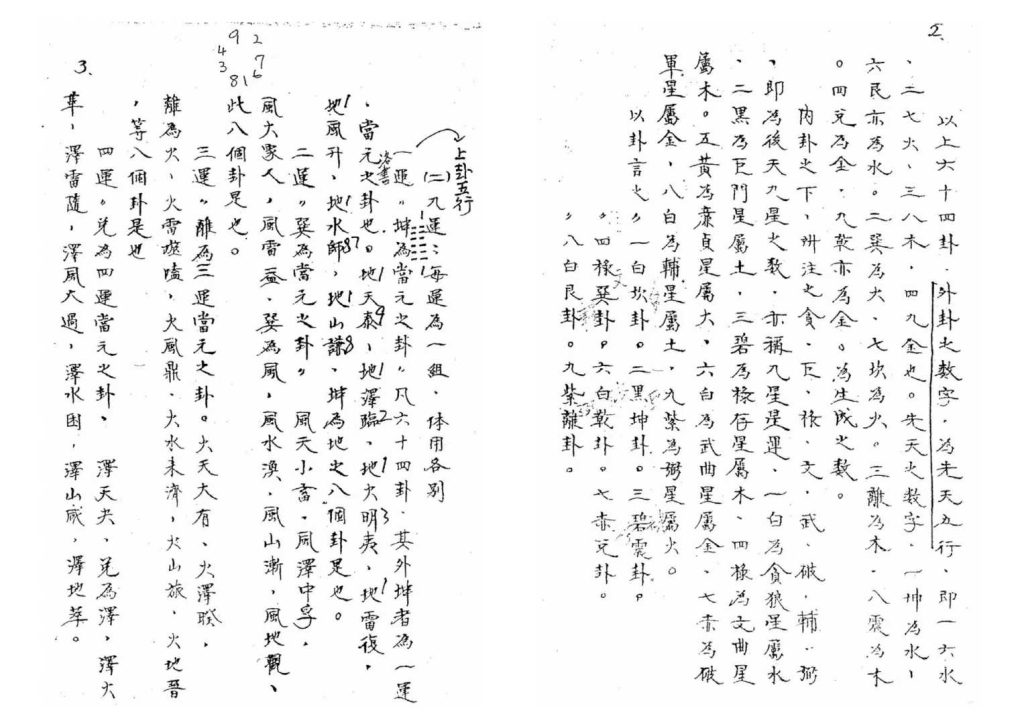 2.
以上六十四卦．外卦之数字，為先天五行、即一六水
、二七火、三八木，四九金也。先天之数字．一坤為水，
六艮亦為水。二巽為火、七坎為火。三離為木、八震為木
。四兌為金．九乾亦為金。為生成之数。
內卦之下，所注之貪、巨、祿、文、武、破、輔、弼
，即為後天九星之数，亦稱九星星運、一白為貪狼星屬水
、二黑為巨門星屬土、三碧為祿存星屬木、四祿為文曲星
屬木。五黃為廉貞星屬火，六白為武曲星屬金、七赤為破
軍星屬金，八白為輔星屬土，九紫為弼星屬火。
以卦言之〃一白坎卦。二黑坤卦。三碧震卦。
〃四祿巽卦。六白乾卦。七赤兌卦。
〃八白艮卦。九紫離卦。
3.
9 2
4 7
3 6
8 1
上卦五行
(二)九運：每運為一組、体用各別
洛書
一運〃坤為當元之卦〃凡六十四卦．其外坤者為一運
、當元之卦也。地天泰，地澤臨、地火明夷、地雷復，
地風升，地水師，地山謙、坤為地之八個卦是也。
二運〃巽為當元之卦〃風天小畜、風澤中孚，
風火家人，風雷益、巽為風，風水渙，風山漸，風地觀、
此八個卦是也。
三運〃離為三運當元之卦。火天大有、火澤睽，
離為火，火雷噬嗑，火風鼎、火水未濟，火山旅，火地晉
，等八個卦是也
四運〃兌為四運當元之卦、澤天夬、兌為澤，澤火
革，澤雷隨，澤風大過，澤水困，澤山咸，澤地萃。